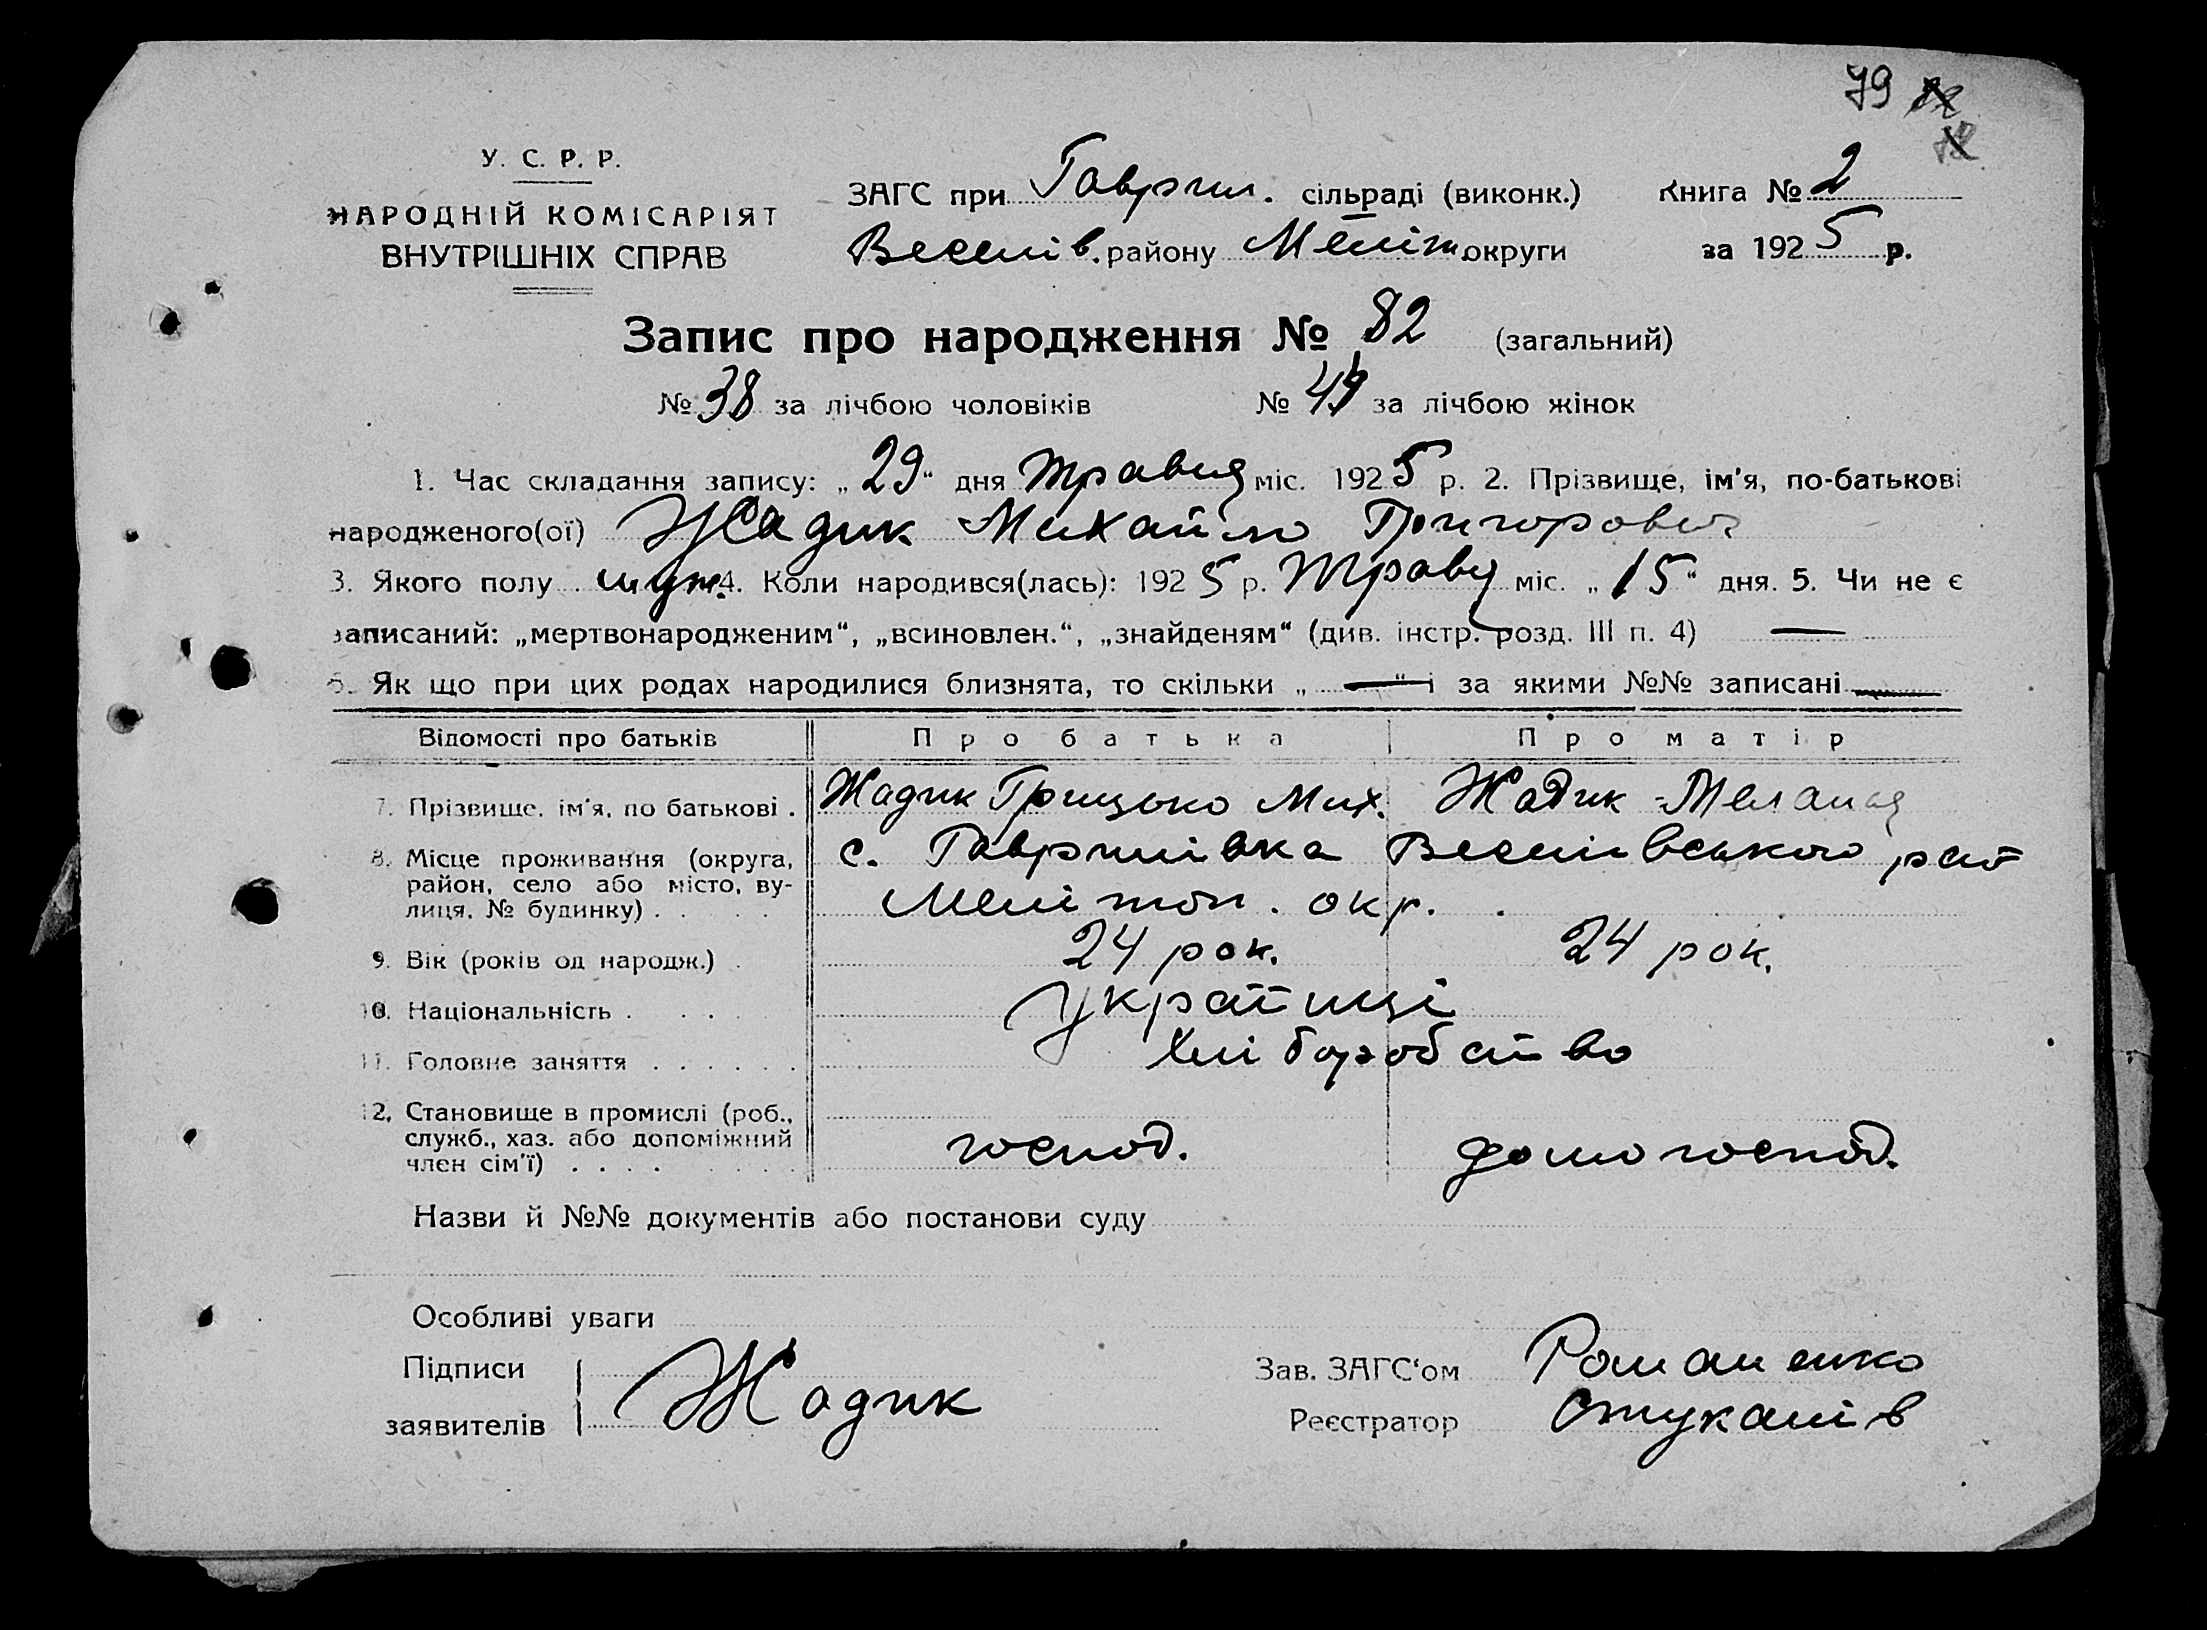 79
У. С. Р. Р.
НАРОДНІЙ КОМІСАРІЯТ
ВНУТРІШНІХ СПРАВ
ЗАГС при Гаврил. сільраді (виконк.) Книга № 2
Веселів. району Меліт. округи за 1925 р.
Запис про народження № 82 (загальний)
№ 38 за лічбою чоловіків № за лічбою жінок
1. Час складання запису: „29“ дня травня міс. 1925 р. 2. Прізвище, ім'я, по-батькові
народженого(ої) Жадик Михайло Григорович
3. Якого полу муж. 4. Коли народився(лась): 1925 р. Травня міс. „15“ дня. 5. Чи не є
записаний: „мертвонародженим“, „всиновлен.“, „знайденям“ (див. інстр. розд. III п. 4) —
6. Як що при цих родах народилися близнята, то скільки „—“ і за якими №№ записані —
Відомості про батьків Про батька Про матір
7. Прізвище, ім'я, по батькові . Жадик Грицько Мих. Жадик Меланя
8. Місце проживання (округа, район, село або місто, вулиця, № будинку) . . с. Гаврилівка Веселівського рай
Мелітоп. окр.
9. Вік (років од народж.) . 24 рок. 24 рок.
10. Національність . . . . Українці
11. Головне заняття . . . . . . Хліборобство
12. Становище в промислі (роб., служб., хаз. або допоміжний член сім'ї) . . . . господ. домогоспод.
Назви й №№ документів або постанови суду
Особливі уваги
Підписи
заявителів Жадик
Зав. ЗАГС'ом Романенко
Реєстратор Стукалів